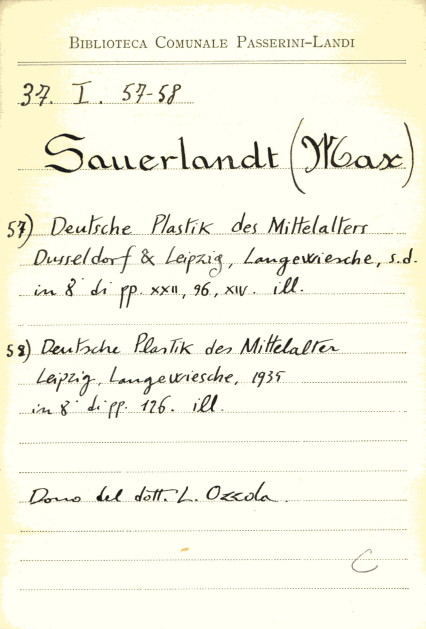 BIBLIOTECA COMUNALE PASSERINI-LANDI
37. I. 57-58
Sauerlandt (Max)
57) Deutsche Plastik des Mittelalters
Dusseldorf & Leipzig, Langewiesche, s.d.
in 8° di pp. XXII, 96, XIV. ill.
58) Deutsche Plastik des Mittelalter
Leipzig, Langewiesche, 1935
in 8° di pp. 126. ill.
Dono del dott. L. Ozzola.
C